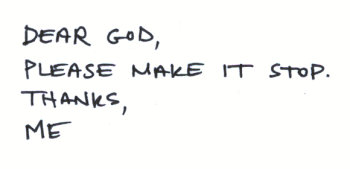 DEAR GOD,
PLEASE MAKE IT STOP.
THANKS,
ME